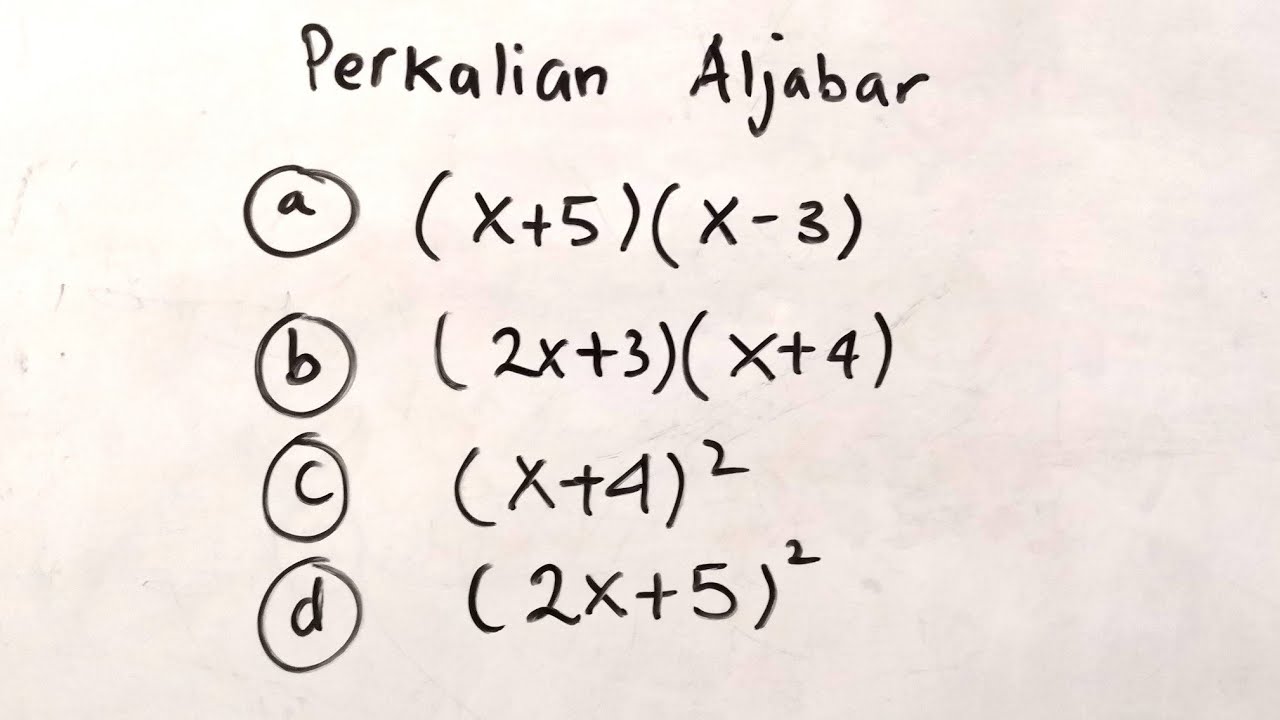 Perkalian Aljabar
a (x+5)(x-3)
b (2x+3)(x+4)
c (x+4)²
d (2x+5)²